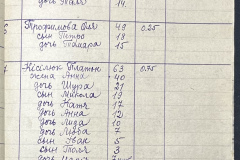 дочь Надя 14
6 Трофимова Оля 49 0.25
сын Петро 18
дочь Тамара 15
7 Кісілюк Платон 63 0.75
жена Анна 40
дочь Шура 21
сын Микола 19
дочь Катя 17
дочь Анна 12
дочь Лида 10
дочь Любва 7
сын Іван 5
сын Толя 3
дочь